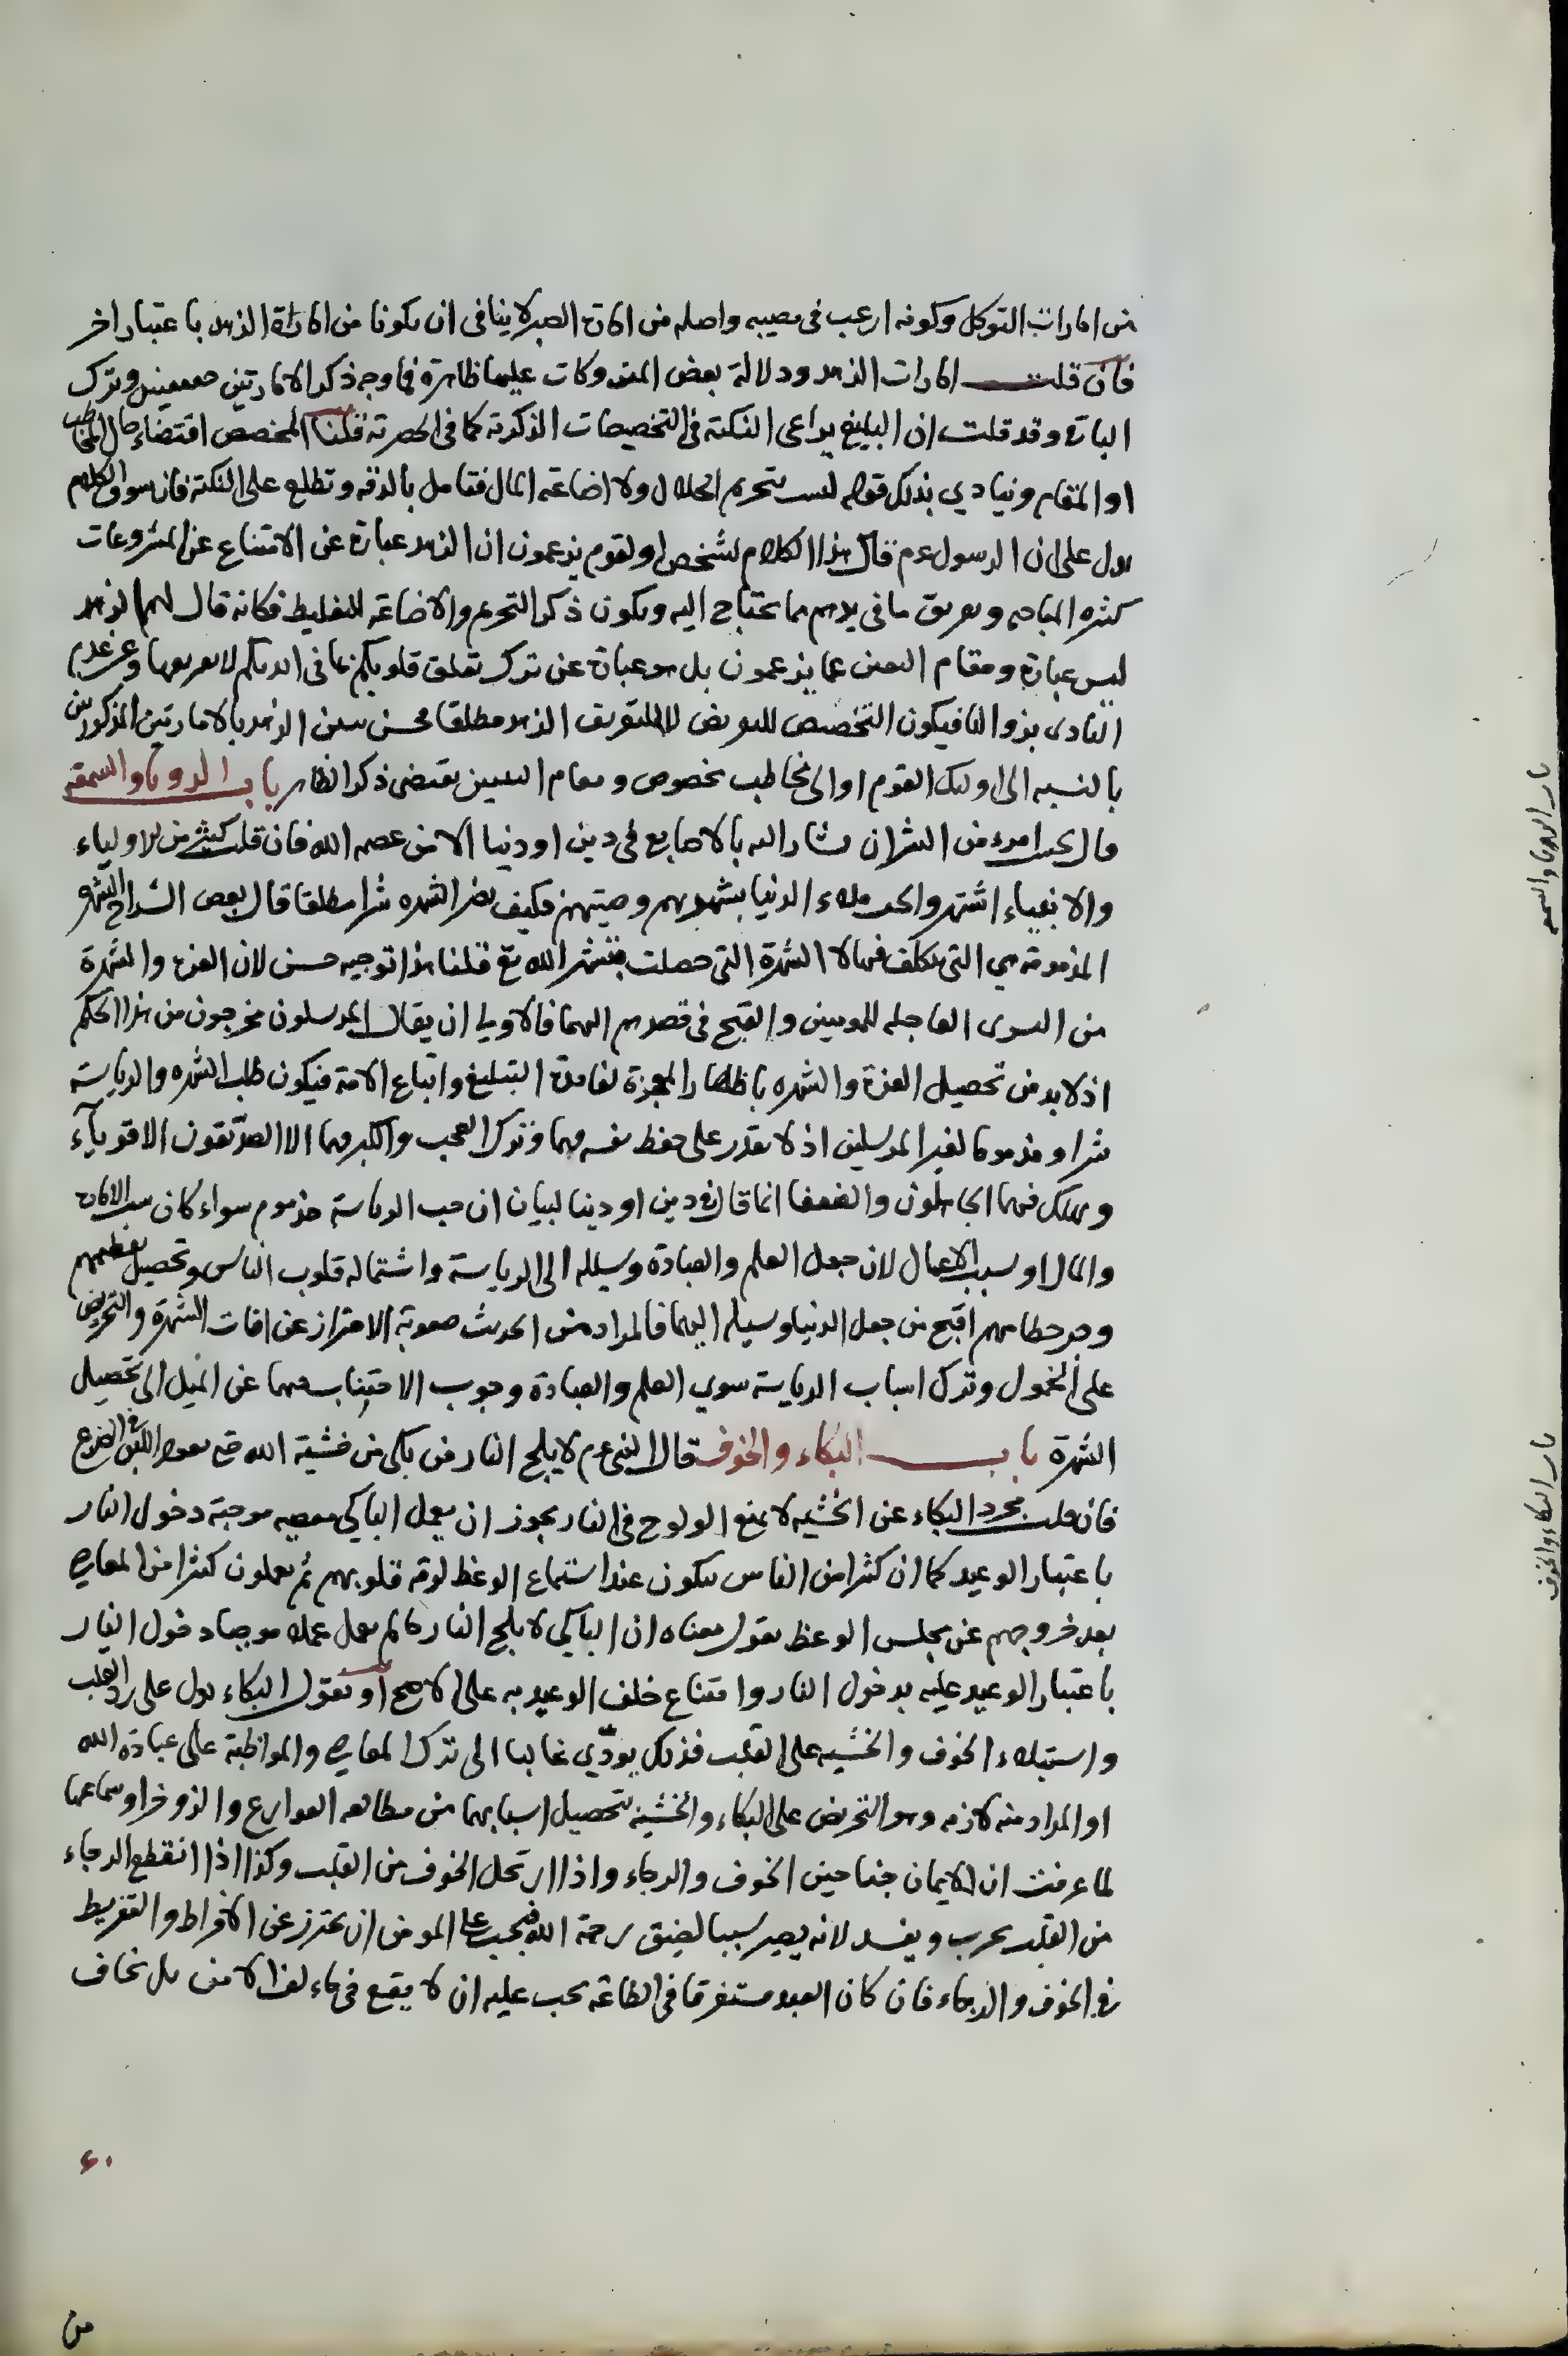 من امارات التوكل وكونه ارعب في مصيبه واصله من امارة الصبر لا ينافي ان يكونا من امارة الزهد باعتبار اخر
فان قلت امارات الزهد ودلالة بعض المتروكات عليها ظاهرة فما وجه ذكر الامارتين وترك
الباقي وقد قلت ان البليغ يراعي النكتة في التخصيصات الذكرية كما في الحصرية قلنا المخصص اقتضاء حال المخاطب
او المقام وينادي بذلك قوله ليست بتحريم الحلال ولا اضاعة المال فتامل بالدقه وتطلع على النكتة فان سوق الكلام
يدل على ان الرسول عم قال هذا الكلام لشخص او لقوم يزعمون ان الزهد عبارة عن الامتناع عن المشروعات
كثيره المباحه وتفريق ما في يدهم مما يحتاج اليه ويكون ذكر التحريم والاضاعة للتغليط فكانه قال لهم الزهد
ليس عبارة ومقام عما يزعمون بل هو عبارة عن ترك تعلق قلوبكم بما في ايديكم لا تفريقها وعن عدم
التاذي بزوالها فيكون التخصيص للتعريض لا لتعريف الزهد مطلقا فحسن تبيين الزهد بالامارتين المذكورتين
بالنسبه الى اولئك القوم او الى مخاطب مخصوص ومقام التبيين يقتضي ذكر الظاهر باب الرويا والسمعة
قال بحسب امرء من الشر ان يشار اليه بالاصابع في دين او دنيا الا من عصمه الله فان قلت كثير من الاولياء
والانبياء اشتهروا الدنيا بشهرتهم وصيتهم فكيف الشهره شرا مطلقا قال بعض الشراح الشهرة
المذمومة هي التي يتكلف فيها لا الشهرة التي حصلت بنشر الله تع قلنا هذا توجيه حسن لان العزة والشهرة
من البشرى العاجله للمومنين والقبح في قصدهم اليهما فالاولى ان يقال المرسلون مخرجون من هذا الحكم
اذ لا بد من تحصيل العزة والشهره باظهار المعجزة لفائدة التبليغ واتباع الامة فيكون طلب الشهره والرياسة
شرا ومذموما لغير المرسلين اذ لا يقدر على حفظ نفسه فيهما وترك العجب والكبر فيهما الا الصديقون الاقوياء
ويهلك فيهما الجاهلون والضعفا انما قال في دين او دنيا لبيان ان حب الرياسة مذموم سواء كان سبب الامارة
والمال او سبب الاعمال لان جعل العلم والعبادة وسيلة الى الرياسة واشتمالة قلوب الناس وتحصيل تعظيمهم
وجر حطامهم اقبح من جعل الدنيا وسيلة اليهما فالمراد من الحديث صعوبة الاحتراز عن افات الشهرة والتحريض
على الخمول وترك اسباب الرياسة سوي العلم والعبادة وجوب الاجتناب فيهما عن الميل الى تحصيل
الشهرة باب البكاء والخوف قال النبي عم لا يلج النار من بكى من خشية الله حتى يعود اللبن في الضرع
فان قلت مجرد البكاء عن الخشيه لا يمنع الولوج في النار يجوز ان يعمل الباكي معصيه موجبة دخول النار
باعتبار الوعيد كما ان كثيرا من الناس يبكون عند استماع الوعظ لرقة قلوبهم ثم يعملون كثيرا من المعاصي
بعد خروجهم عن مجلس الوعظ نقول معناه ان الباكي لا يلج النار ما لم يعمل عمله موجبا دخول النار
باعتبار الوعيد عليه بدخول النار وامتناع خلف الوعيد به على الاصح او نقول البكاء يدل على القلب
واستيلاء الخوف والخشيه على القلب فذلك يودّي غالبا الى ترك المعاصي والمواظبة على عبادة الله
او المراد منه لازمه وهو التحريض على البكاء والخشية بتحصيل اسبابهما من مطالعه القوارع والزواجر او سماعها
لما عرفت ان للايمان جناحين الخوف والرجاء واذا ارتحل الخوف من القلب وكذا اذا انقطع الرجاء
من القلب يخرب ويفسد لانه يصير سببا لضيق رحمة الله فيجب على المومن ان يحترز عن الافراط والتفريط
في الخوف والرجاء فان كان العبد مستغرقا في الطاعة يجب عليه ان لا يقع في الامن بل يخاف
٤٠
من
باب الرويا والسمعه
باب البكاء والخوف